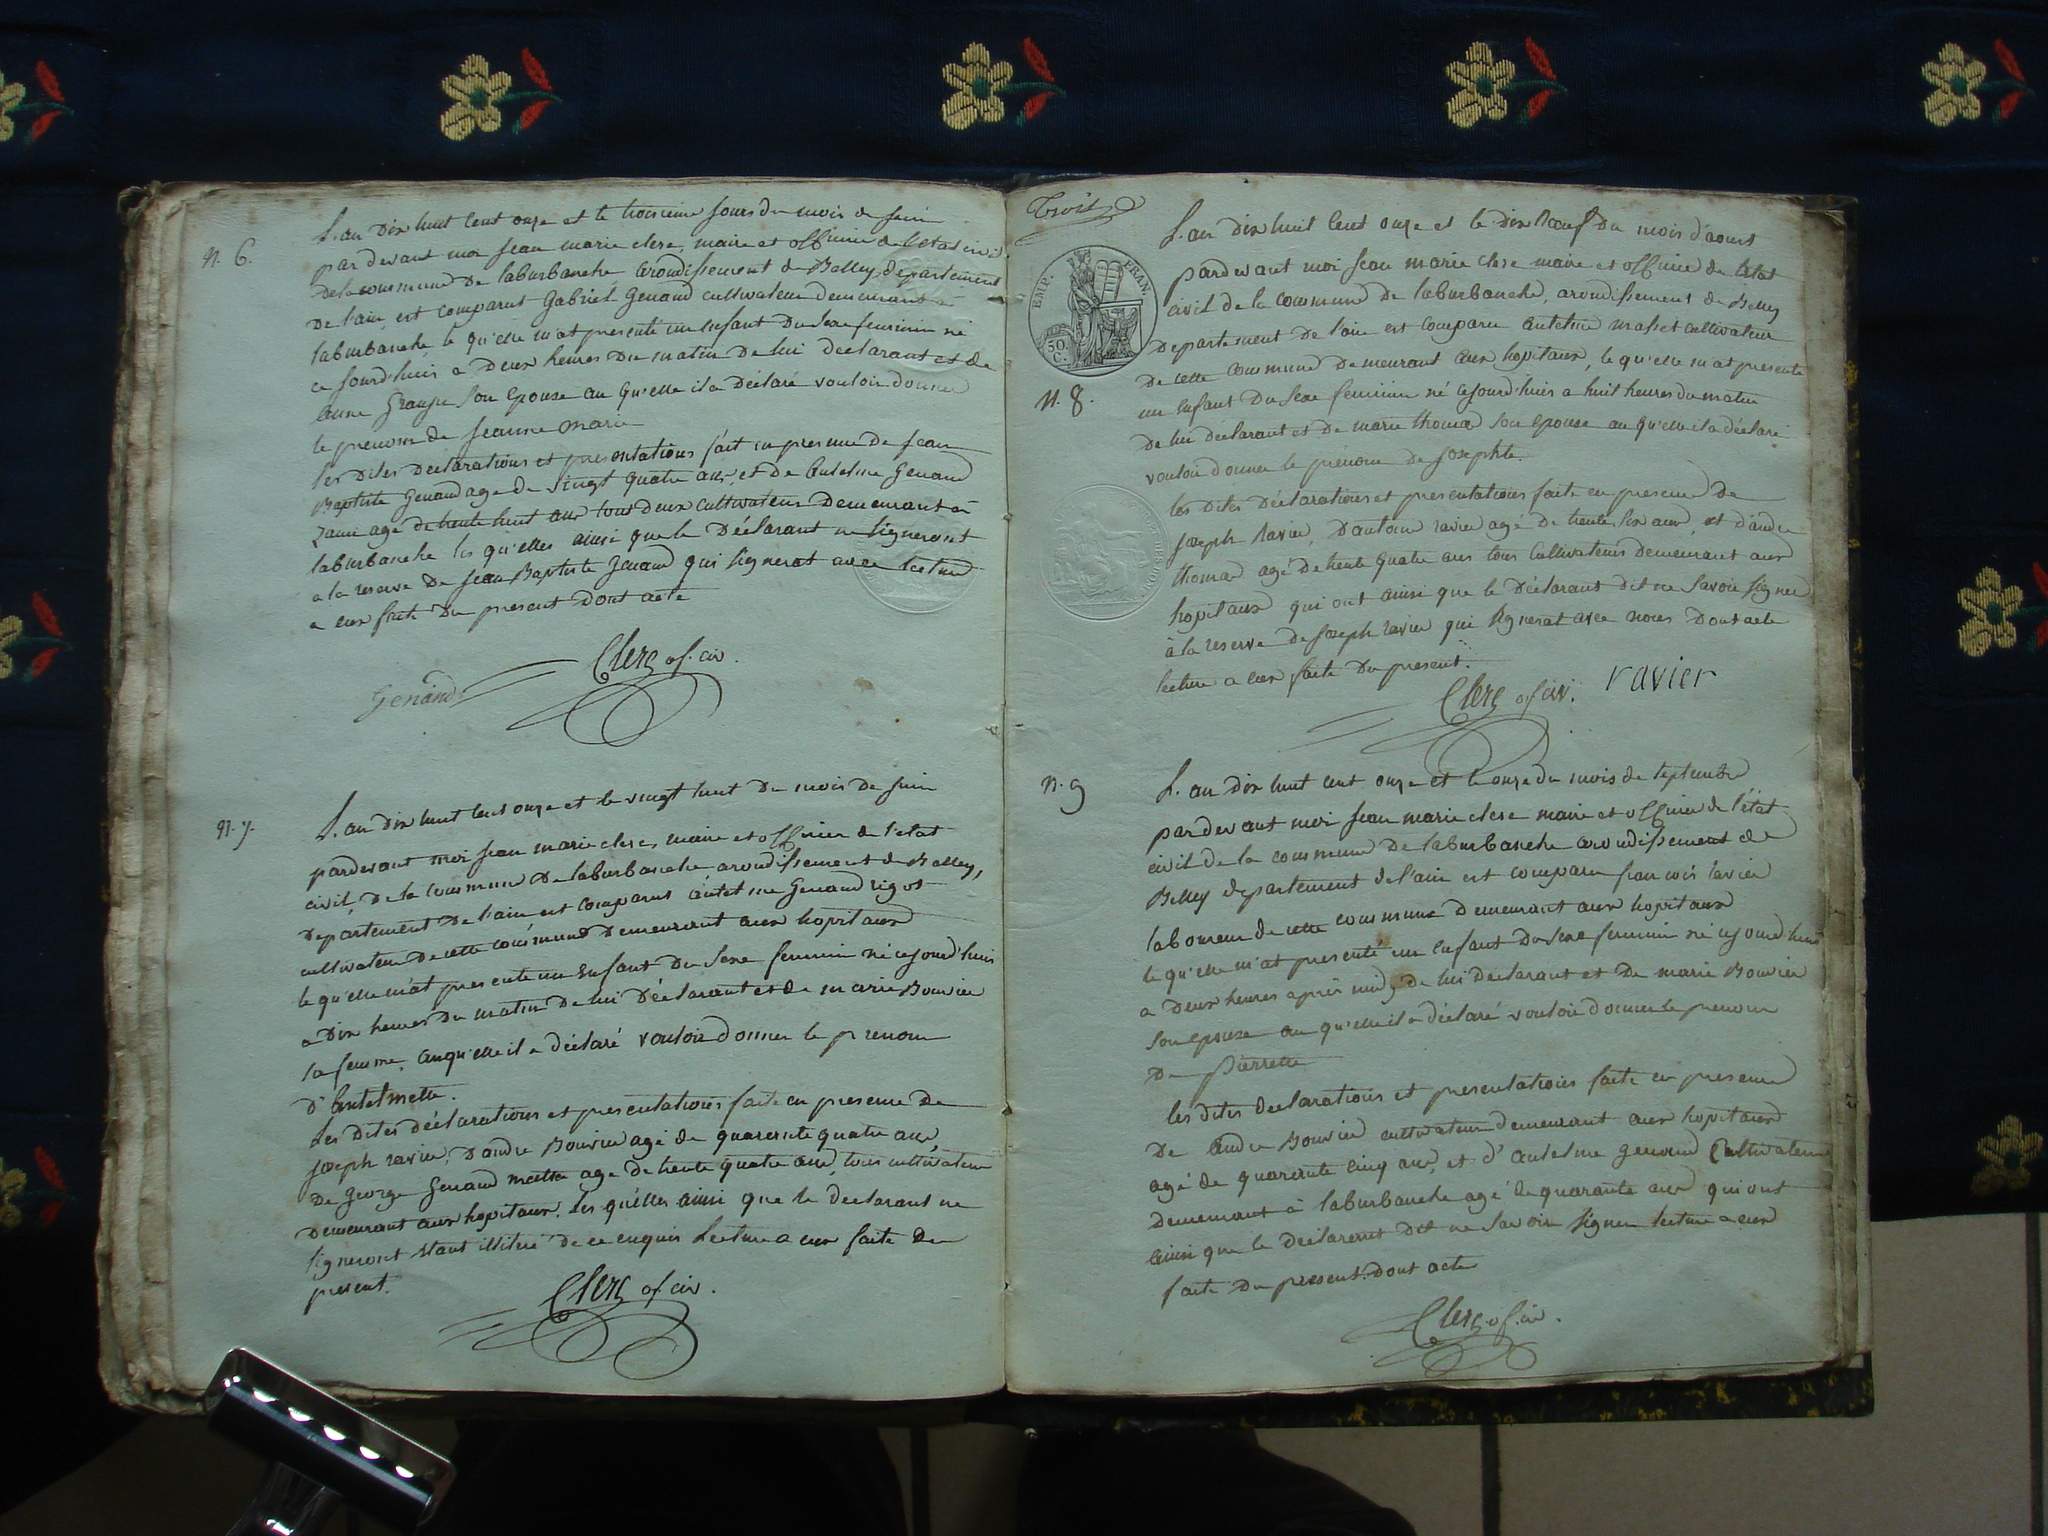 N. 6.
L'an dix huit cent onze et le troisieme jour du mois de juin
par devant moi jean marie clerc, maire et officier de l'état civil
de la commune de laburbanche arondissement de Belley, departement
de l'ain, est comparut Gabriel Genaud cultivateur demeurant à
laburbanche, le qu'elle m'at presenté un enfant du sexe feminin né
ce jourd'huis a deux heures du matin de lui déclarant et de
anne son epouse au qu'elle il a déclaré vouloir donner
le prenom de jeanne marie
les dites declarations et presentations fait en presence de jean
Baptiste Genaud age de vingt quatre ans, et de antelme Genaud
age de trente huit ans tous deux cultivateur demeurant à
laburbanche les qu'elles ainsi que le déclarant ne signeront
a la reserve de jean Baptiste Genaud qui signerat avec lecture
a eux faite du present dont acte
Clerc of. civ.
Genaud
N. 7.
L'an dix huit cent onze et le vingt huit du mois de juin
pardevant moi jean marie clerc, maire et officier de l'etat
civil, de la commune de laburbanche, arondissement de Belley,
departement de l'ain est comparut antelme Genaud rigot
cultivateur de cette commune demeurant aux hopitaux
le qu'elle m'at presenté un enfant du sexe feminin né cejourd'huis
a dix heures du matin de lui déclarant et de marie Bouvier
sa femme, auqu'elle il a déclaré vouloir donner le prenom
d'antelmette.
Les dites déclarations et presentations faite en presence de
joseph ravier, d'andre Bouvier agé de quarente quatre ans,
de george Genaud age de trente quatre ans, tous cultivateur
demeurant aux hopitaux. les qu'elles ainsi que le declarant ne
signeront étant illitéré de ce enquis lecture a eux faite du
present.
Clerc of. civ.
Trois
EMP. FRAN.
50. C.
N. 8.
L'an dix huit cent onze et le dix noeuf du mois d'aoust
pardevant moi jean marie clerc maire et officier de l'etat
civil de la commune de laburbanche, arondissement de Belley
departement de l'ain est comparu antelme masset cultivateur
de cette commune demeurant aux hopitaux, le qu'elle m'at presente
un enfant du sexe feminin né cejourd'huis a huit heures du matin
de lui déclarant et de marie thomas son epouse au qu'elle il a déclaré
vouloir donner le prénom de josephte.
les dites déclarations et presentations faite en presence de
joseph ravier, d'antoine ravier agé de trente six ans, et d'andre
thomas agé de trente quatre ans tous cultivateurs demeurant aux
hopitaux qui ont ainsi que le déclarant dit ne savoir signer
à la reserve de joseph ravier qui signerat avec nous dont acte
lecture a eux faite du present.
Clerc of. civ. ravier
N. 9
L'an dix huit cent onze et le onze du mois de septembre
par devant moi jean marie clerc maire et officier de l'état
civil de la commune de laburbanche arondissement de
Belley departement de l'ain est comparu francois ravier
laboureur de cette commune demeurant aux hopitaux
le qu'elle m'at presenté un enfant du sexe feminin né cejourd'huis
a deux heures après midy de lui declarant et de marie Bouvier
son epouse au qu'elle il a déclaré vouloir donner le prenom
de pierrette
les dites declarations et presentations faite en presence
de andre Bouvier cultivateur demeurant aux hopitaux
agé de quarante cinq ans, et d'antelme genaud cultivateur
demeurant à laburbanche agé de quarante ans qui ont
ainsi que le declarant dit ne savoir signer lecture a eux
faite du present. dont acte
Clerc of. civ.